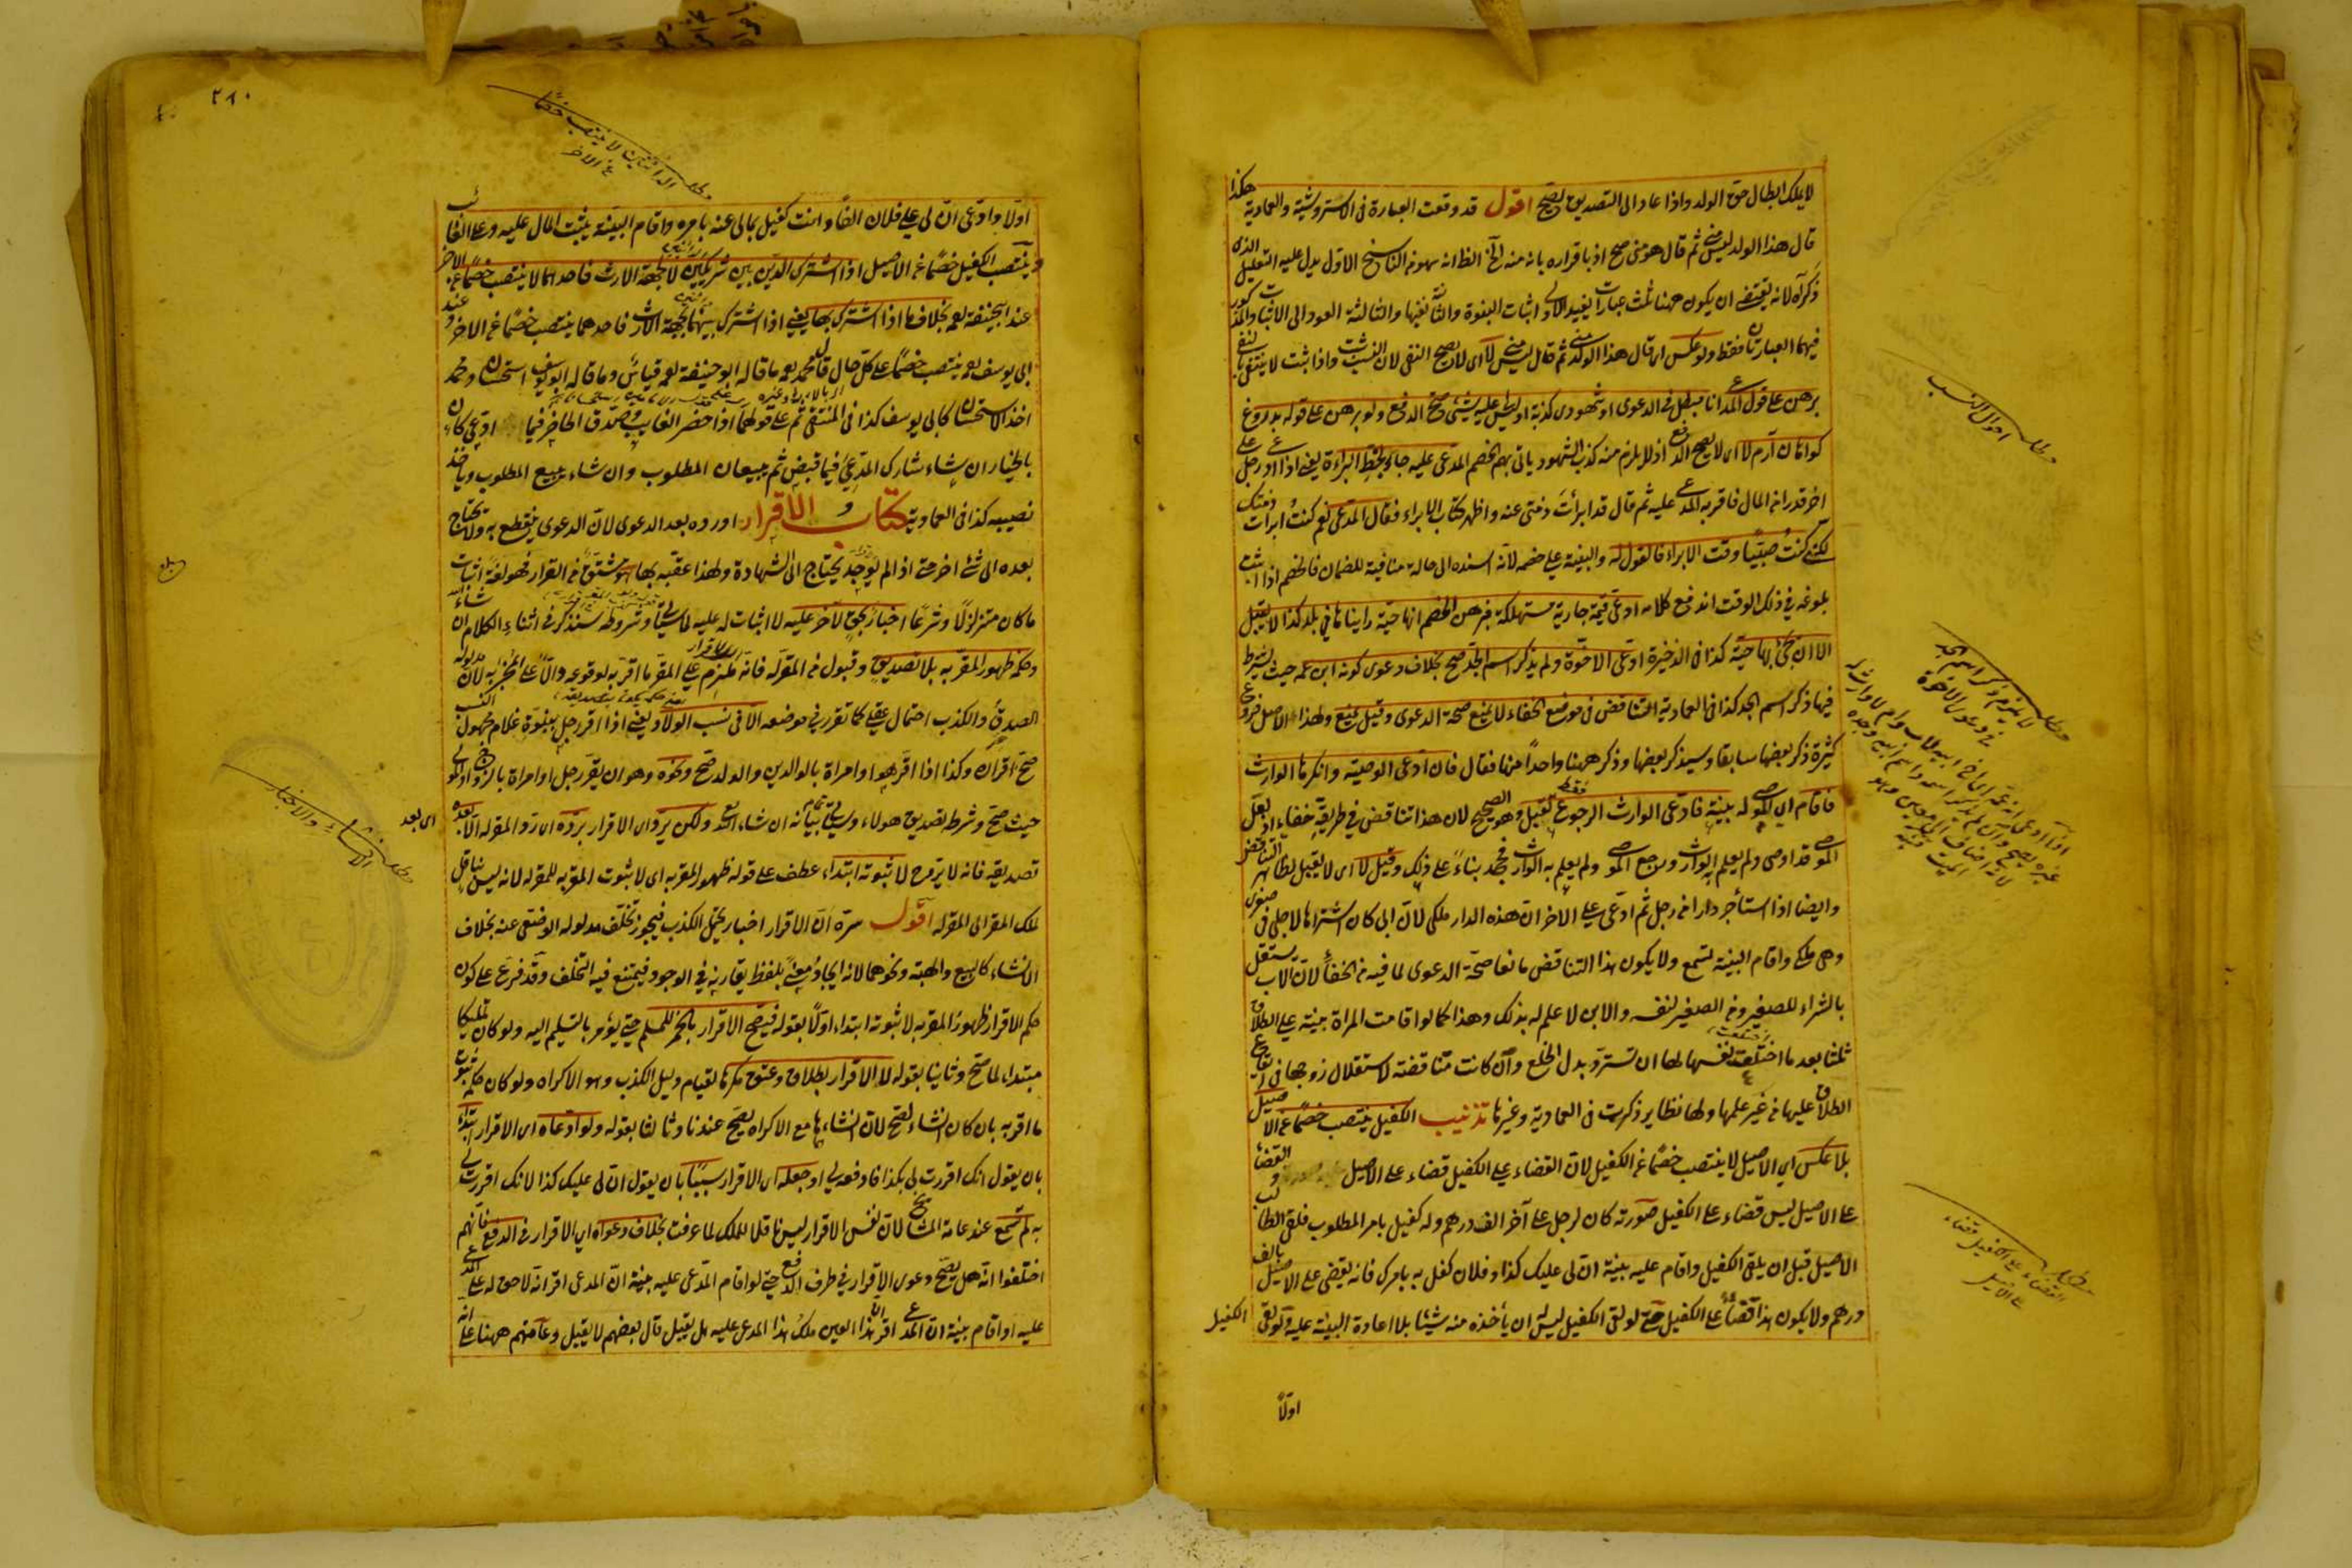 لا يملك ابطال حق الولد واذا عاد الى التصديق يصح اقول قد وقعت العبارة فى الاستروشنية والعمادية هكذا
قال هذا الولد ليس منى ثم قال هو منى صح اذ باقراره بانه منه الخ الظ انه سهو من الناسخ الاول يدل عليه التعليل الذى
ذكراه لانه يقتضى ان يكون ههنا ثلث عبارات يفيد الاولى اثبات البنوة والثانية نفيها والثالثة العود الى الاثبات والمذكور
فيهما العبارتان فقط ولو عكس اى قال هذا الولد منى ثم قال ليس منى لا اى لا يصح النفى لان النسب ثبت واذا ثبت لا ينتفى بالنفى
برهن على قول المدعى انا مبطل فى الدعوى او شهودى كذبة او ليس لى عليه شئ صح الدفع ولو برهن على قوله بدروغ
كواهان آرم لا اى لا يصح الدفع اذ لا يلزم منه كذب الشهود ياتى بهم الخصم المدعى عليه جاء بخط البراءة يعنى اذا ادعى رجل على
اخر قدرا من المال فاقر به المدعى عليه ثم قال قد ابرأت ذمتى عنه واظهر كتاب الابراء فقال المدعى نعم كنت ابرأت ذمتك
لكنى كنت صبيا وقت الابراء فالقول له والبينة على خصمه لانه اسنده الى حالة منافية للضمان فالخصم اذا اثبت
بلوغه فى ذلك الوقت اندفع كلامه ادعى قيمة جارية مستهلكة فبرهن الخصم انها حية راينا ها فى بلد كذا لا يقبل
الا ان يجئ بها حية كذا فى الذخيرة ادعى الاخوة ولم يذكر اسم الجد صح بخلاف دعوى كونه ابن عمه حيث يشترط
فيها ذكر اسم الجد كذا فى العمادية التناقض فى موضع الخفاء لا يمنع صحة الدعوى وقيل يمنع ولهذا الاصل فروع
كثيرة ذكر بعضها سابقا وسيذكر بعضها وذكر ههنا واحدا منها فقال فان ادعى الوصية وانكرها الوارث
فاقام اى الموصى له بينة فادعى الوارث الرجوع فقط يقبل وهو الصحيح لان هذا تناقض فى طريقه خفاء اذ لعل
الموصى قد اوصى ولم يعلم به الوارث ورجع الموصى ولم يعلم به الوارث فجحد بناء على ذلك وقيل لا اى لا يقبل لظاهر التناقض
وايضا اذا استأجر دارا من رجل ثم ادعى على الاخر ان هذه الدار ملكى لان ابى كان اشتراها لاجلى فى صغرى
وهى ملكى واقام البينة تسمع ولا يكون هذا التناقض مانعا صحة الدعوى لما فيه من الخفاء لان الاب يستقل
بالشراء للصغير ومن الصغير لنفسه والابن لا علم له بذلك وهذا كما لو اقامت المراة بينة على الطلاق
ثلثا بعد ما اختلعت نفسها لها ان تسترد بدل الخلع وان كانت متناقضة لاستقلال زوجها فى ايقاع
الطلاق عليها من غير علمها ولها نظاير ذكرت فى العمادية وغيرها تذنيب الكفيل ينتصب خصما عن الاصيل
بلا عكس اى الاصيل لا ينتصب خصما عن الكفيل لان القضاء على الكفيل قضاء على الاصيل والقضاء
على الاصيل ليس قضاء على الكفيل صورته كان لرجل على آخر الف درهم وله كفيل بامر المطلوب فلقى الطالب
الاصيل قبل ان يلقى الكفيل واقام عليه بينة ان لى عليك كذا وفلان كفل به بامرك فانه يقضى على الاصيل بالف
درهم ولا يكون هذا قضاء على الكفيل حتى لو لقى الكفيل ليس له ان يأخذه منه شيئا بلا اعادة البينة عليه ولو لقى الكفيل
اولا
مطلب احوال النسب
مطلب لا يلزم ذكر اسم الجد فى دعوى الاخوة
مطلب القضاء على الكفيل قضاء على الاصيل
٢٨٠
مطلب الدائنين لا ينتصب خصما عن الاخر
اولا وادعى ان لى على فلان الفا وانت كفيل بمالى عنه بامره واقام البينة يثبت المال عليه وعلى الغائب
وينتصب الكفيل خصما عن الاصيل اذا اشترك الدين بين شريكين لا بجهة الارث فاحدهما لا ينتصب خصما عن الاخر
عند ابى حنيفة بخلاف ما اذا اشترك بها يعنى اذا اشترك بينهما بجهة الارث فاحدهما ينتصب خصما عن الاخر وعند
ابى يوسف ينتصب خصما على كل حال قال محمد ما قاله ابو حنيفة قياس وما قاله ابو يوسف استحسان ومحمد
اخذ الاستحسان كابى يوسف كذا فى المنتقى ثم على قولهما اذا حضر الغايب وصدق الحاضر فيما ادعى كان
بالخيار ان شاء شارك المدعى فيما قبض ثم يتبعان المطلوب وان شاء يتبع المطلوب وياخذ
نصيبه كذا فى العمادية كتاب الاقرار اورده بعد الدعوى لان الدعوى ينقطع به ولا يحتاج
بعده الى شئ اخر حتى اذا لم يوجد يحتاج الى الشهادة ولهذا عقبه بها هو مشتق من القرار فهو لغة اثبات
ما كان متزلزلا وشرعا اخبار بحق لآخر عليه لا اثبات له عليه لما سياتى وشروطه ستذكر فى اثناء الكلام ان شاء الله
وحكمه ظهور المقر به بلا تصديق وقبول من المقر له فانه ملزم على المقر ما اقر به لوقوعه دالا على المخبر به لان مدلوله
الصدق والكذب احتمال عقلى كما تقرر فى موضعه الا فى نسب الولاد يعنى اذا اقر رجل ببنوة غلام مجهول النسب
صح اقراره وكذا اذا اقر هو او امراة بالوالدين والولد صح ونحوه وهو ان يقر رجل او امراة بالزوج او المولى
حيث صح وشرط تصديق هولاء وسياتى تمام بيانه ان شاء الله تع ولكن يرد اى الاقرار برده اى رد المقر له الا بعده
تصديقه فانه لا يرد ح لا ثبوته ابتداء عطف على قوله ظهور المقر به اى لا ثبوت المقر به للمقر له لانه ليس بناقل
لملك المقر الى المقر له اقول سره ان الاقرار اخبار يحتمل الكذب فيجوز تخلف مدلوله الوضعى عنه بخلاف
الانشاء كالبيع والهبة ونحوهما لانه ايجاد معنى بلفظ يقارنه فى الوجود فيمتنع فيه التخلف وقد فرع على كون
حكم الاقرار ظهور المقر به لا ثبوته ابتداء اولا بقوله فيصح الاقرار بالخمر للمسلم حتى يؤمر بالتسليم اليه ولو كان تمليكا
مبتداء لما صح وثانيا بقوله لا الاقرار بطلاق وعتق مكرها لقيام دليل الكذب وهو الاكراه ولو كان حكمه ثبوت
ما اقر به بان كان انشاء لصح لان انشاءها مع الاكراه يصح عندنا وثالثا بقوله ولو ادعاه اى الاقرار ابتداء
بان يقول انك اقررت لى بكذا فادفعه لى او جعله اى الاقرار سببا بان يقول ان لى عليك كذا لانك اقررت لى
به لم تسمع عند عامة المشايخ لان نفس الاقرار ليس ناقلا للملك لما عرفت بخلاف دعواه اى الاقرار فى الدفع فانهم
اختلفوا انه هل يصح دعوى الاقرار فى طرف الدفع حتى لو اقام المدعى عليه بينة ان المدعى اقر انه لا حق له على المدعى
عليه او اقام بينة ان المدعى اقر ان هذا العين ملك هذا المدعى عليه هل يقبل قال بعضهم لا يقبل وعامتهم ههنا على انه
اى بعد
مطلب الانشاء والاخبار
بلغ